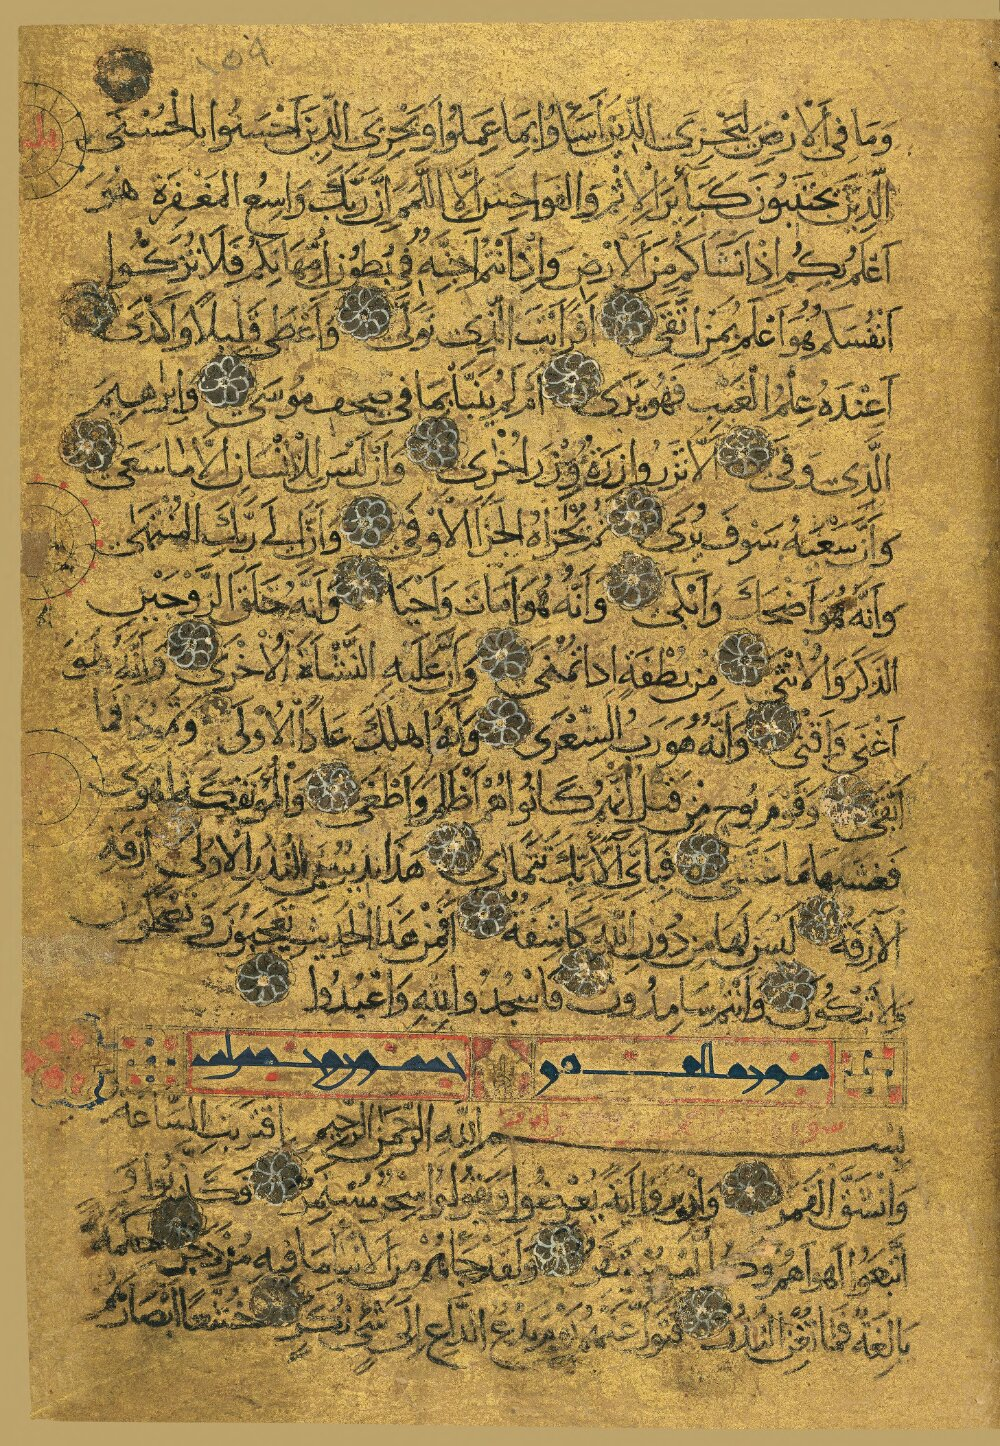 وما في الارض ليجزي الذين أساؤا بما عملوا ويجزي الذين احسنوا بالحسنى
الذين يجتنبون كبائر الاثم والفواحش الا اللمم ان ربك واسع المغفرة هو
اعلم بكم اذ انشاكم من الارض واذ انتم اجنة في بطون امهاتكم فلا تزكوا
انفسكم هو اعلم بمن اتقى افرايت الذي تولى واعطى قليلا واكدى
اعنده علم الغيب فهو يرى ام لم ينبأ بما في صحف موسى وابرهيم
الذي وفى الا تزر وازرة وزر اخرى وان ليس للانسان الا ما سعى
وان سعيه سوف يرى ثم يجزاه الجزا الاوفى وان الى ربك المنتهى
وانه هو اضحك وابكى وانه هو امات واحيا وانه خلق الزوجين
الذكر والانثى من نطفة اذا تمنى وان عليه النشاة الاخرى وانه هو
اغنى واقنى وانه هو رب الشعرى وانه اهلك عادا الاولى وثمودا فما
ابقى وقوم نوح من قبل انهم كانوا هم اظلم واطغى والمؤتفكة اهوى
فغشيها ما غشى فباي آلاء ربك تتمارى هذا نذير من النذر الاولى ازفة
الازفة ليس لها من دون الله كاشفة افمن هذا الحديث تعجبون وتضحكون
ولا تبكون وانتم سامدون فاسجدوا لله واعبدوا
سورة القمر
بسم الله الرحمن الرحيم اقتربت الساعة
وانشق القمر وان يروا اية يعرضوا ويقولوا سحر مستمر وكذبوا و
اتبعوا اهواهم وكل امر مستقر ولقد جاهم من الانبا ما فيه مزدجر حكمة
بالغة فما تغن النذر فتول عنهم يوم يدع الداع الى شئ نكر خشعا ابصارهم